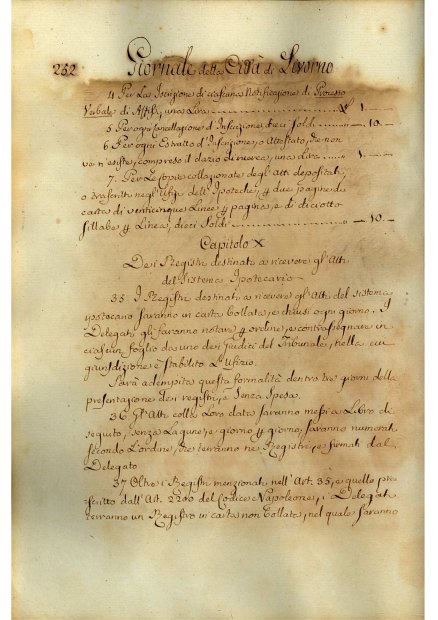 252 Giornale della Città di Livorno
4 Per La Iscrizione di ciascuna Notificazione di Processo
Verbale di Affissi, una Lira 1
5 Per ogni Cancellazione d'Inscrizione, dieci soldi 10
6 Per ogni Estratto d'Inscrizione, o Attestato, che non
ve n'esiste, compreso il dazio di ricerca, una Lira 1
7. Per Le copie collazionate degl'atti depositati,
o trascritti negl'Ufizj dell'Ipoteche, p due pagine di
carta di venticinque Linee p pagina, e di diciotto
sillabe p Linea, dieci Soldi 10
Capitolo X
Dei Registri destinati a ricevere gl'Atti
del Sistema Ipotecario
35 I Registri destinati a ricevere gl'Atti del sistema
ipotecario saranno in carta bollata, e chiusi ogni giorno. I
Delegati gli faranno notare p ordine, e contrassegnare in
ciascun foglio da uno dei giudici del Tribunale, nella cui
giurisdizione è stabilito l'Ufizio.
Sarà adempita questa formalità dentro tre giorni dalla
presentazione dei registri, e Senza Spesa.
36 Gl'Atti colla Loro data saranno messi a Libro di
seguito, senza Lagune, e giorno p giorno; saranno numerati
secondo L'ordine, che terranno ne Registri, e firmati dal
Delegato
37 Oltre i Registri menzionati nell'Art. 35, e quello pre
scritto dall'Art. 2200 del Codice Napoleone, i Delegati
terranno un Registro in carta non bollata, nel quale saranno